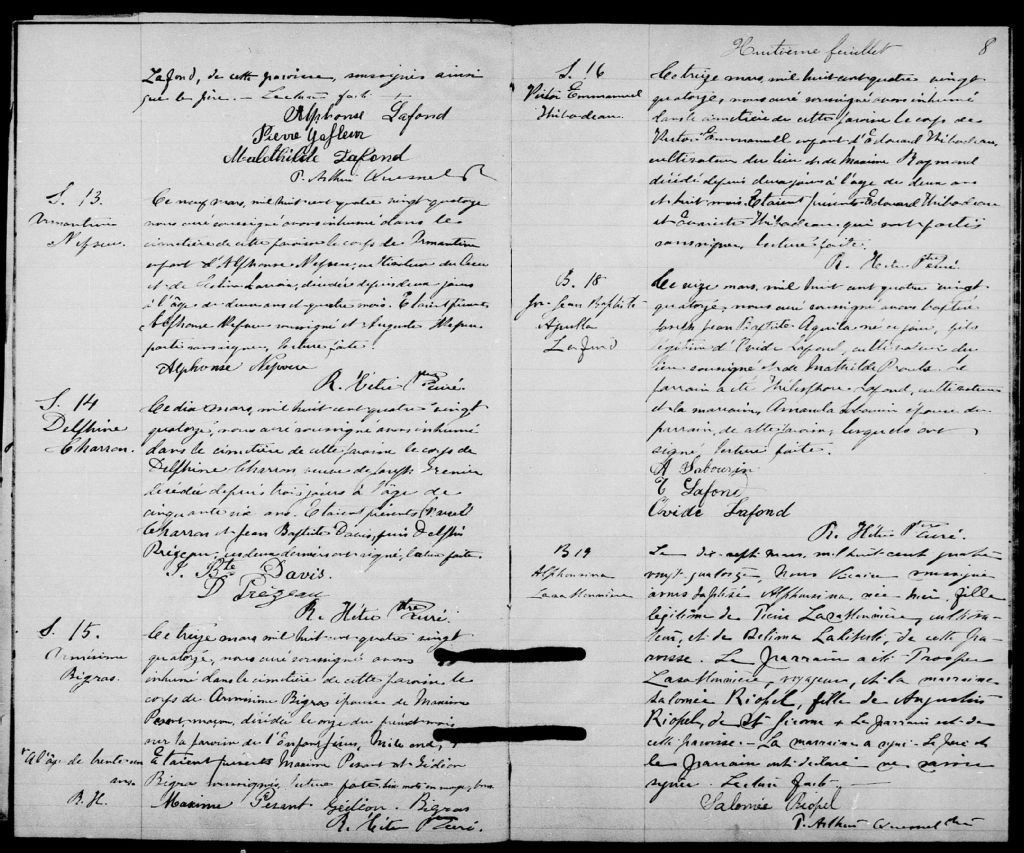 Lafond, de cette paroisse, soussignés ainsi
que le père. – Lecture faite
Alphonse Lafond
Pierre
Malethilde Lafond
P. Arthur Quesnel ptr
S. 13.
Ce neuf mars, mil huit cent quatre vingt quatorze
nous curé soussigné avons inhumé dans le
cimetière de cette paroisse le corps de
enfant d'Alphonse Nepveu, cultivateur du lieu
et de décédée depuis deux jours
à l'âge de deux ans et quatre mois. Etaient présents
Alphonse Nepveu soussigné et Auguste Nepveu
lecture faite.
Alphonse Nepveu
R. Hétu Ptre Curé.
S. 14
Delphine
Charron.
Ce dix mars, mil huit cent quatre vingt
quatorze, nous curé soussigné avons inhumé
dans le cimetière de cette paroisse le corps de
Delphine Charron veuve de Joseph Grenier
décédée depuis trois jours à l'âge de
cinquante six ans. Etaient présents
Charron et Jean Baptiste Davis, puis Delphis
Prégeau, ces deux derniers ont signé, lecture faite.
J. Bte Davis.
D Prégeau
R. Hétu Ptre Curé.
S. 15.
Bigras.
Ce treize mars mil huit cent quatre vingt
quatorze, nous curé soussigné avons
inhumé dans le cimetière de cette paroisse le
corps de Bigras épouse de Maxime
Pesant, maçon, décédée le onze du présent mois,
sur la paroisse de l'Enfant Jésus, Mile end,
x à l'âge de trente-un
ans.
R. H.
Etaient présents Maxime Pesant et Gédéon
Bigras soussignés, lecture faite.
Maxime Pesant Gédéon Bigras
R. Hétu Ptre Curé.
Huitième feuillet 8
S. 16
Victor Emmanuel
Thibodeau.
Ce treize mars, mil huit cent quatre vingt
quatorze, nous curé soussigné avons inhumé
dans le cimetière de cette paroisse le corps de
Victor Emmanuell enfant d'Edouard Thibodeau,
cultivateur du lieu et de Maxime Raymond
décédé depuis deux jours à l'âge de deux ans
et huit mois. Etaient présents Edouard Thibodeau
et Thibodeau qui
lecture faite.
R. Hétu Ptre Curé.
B. 18
Jos. Jean Baptiste
Lafond
Ce mars, mil huit cent quatre vingt
quatorze, nous curé soussigné avons baptisé
Joseph Jean Baptiste Aquila né ce jour, fils
légitime d'Ovide Lafond, cultivateur du
lieu soussigné et de Mathilde Proulx. Le
parrain a été Thélesphore Lafond, cultivateur
et la marraine, Amanda Sabourin épouse du
parrain, de cette paroisse, lesquels ont
signé, lecture faite.
A Sabourin
T Lafond
Ovide Lafond
R. Hétu Ptre Curé.
B 19
Alphonsina
Lazamonnière
Le dix-sept mars, mil huit cent quatre
vingt quatorze, Nous Vicaire soussigné
avons baptisé Alphonsina, née fille
légitime de Pierre Lazamonnière, cultiva-
teur, et de Delima Laliberté, de cette pa-
roisse. Le parrain a été
Lazamonnière, voyageur, et la marraine
Salomée Riopel, fille de Augustin
Riopel, de St Jérome. Le parrain est de
cette paroisse. – La marraine a signé. Le père et
le parrain ont déclaré ne savoir
signer. Lecture faite.
Salomée Riopel
P. Arthur Quesnel